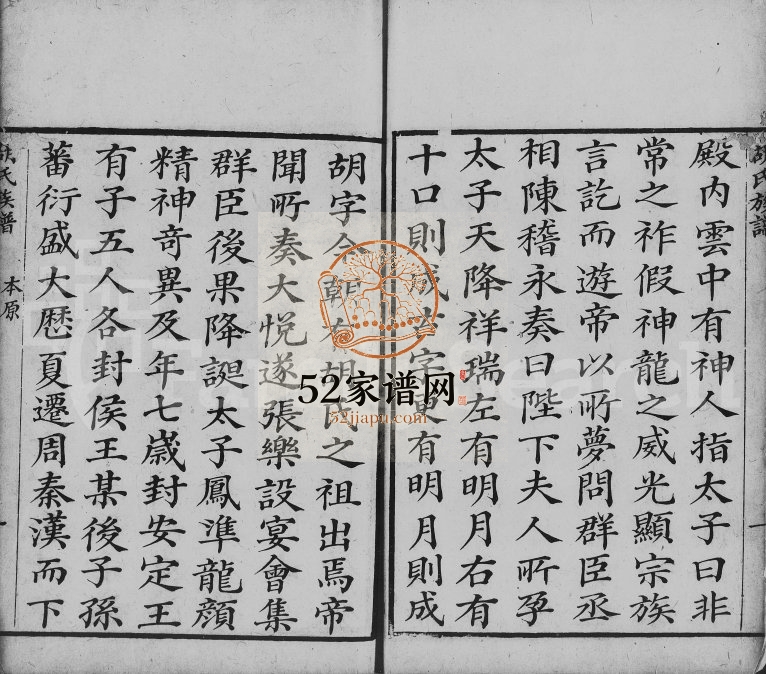 殿内雲中有神人指太子曰非
常之祚假神龍之威光顯宗族
言訖而遊帝以所夢問群臣丞
相陳稽永奏曰陛下夫人所孕
太子天降祥瑞左有明月右有
十口則成古字更有明月則成
胡字今朝有胡氏之祖出焉帝
聞所奏大悦遂張樂設宴會集
群臣後果降誕太子鳳準龍顔
精神奇異及年七歲封安定王
有子五人各封侯王某後子孫
蕃衍盛大歷夏遷周秦漢而下
胡氏族譜
本原
一
胡氏族譜
52家谱网
52jiapu.com